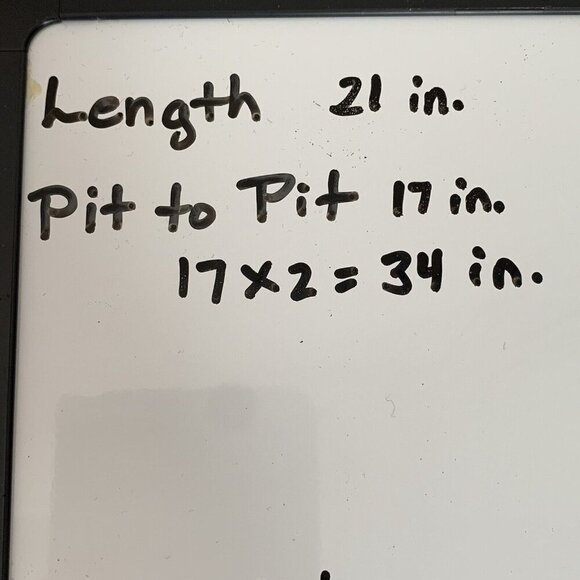 Length 21 in.
Pit to Pit 17 in.
17x2=34 in.